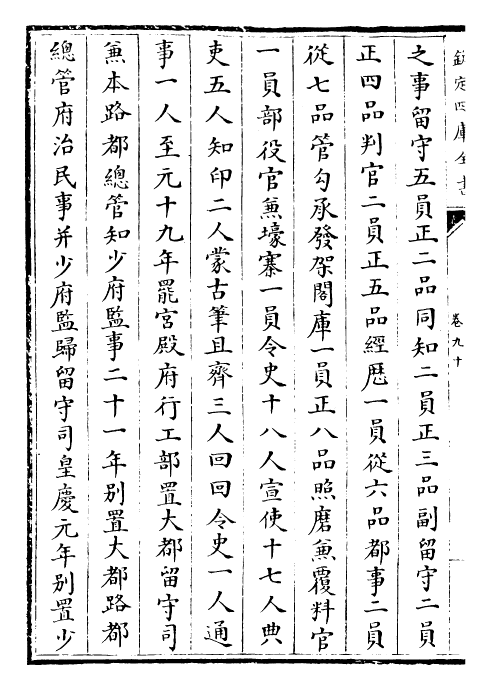 欽定四庫全書
卷九十
之事留守五員正二品同知二員正三品副留守二員
正四品判官二員正五品經歷一員從六品都事二員
從七品管勾承發架閣庫一員正八品照磨兼覆料官
一員部役官兼壕寨一員令史十八人宣使十七人典
吏五人知印二人蒙古筆且齊三人回回令史一人通
事一人至元十九年罷宮殿府行工部置大都留守司
兼本路都總管知少府監事二十一年別置大都路都
總管府治民事并少府監歸留守司皇慶元年別置少